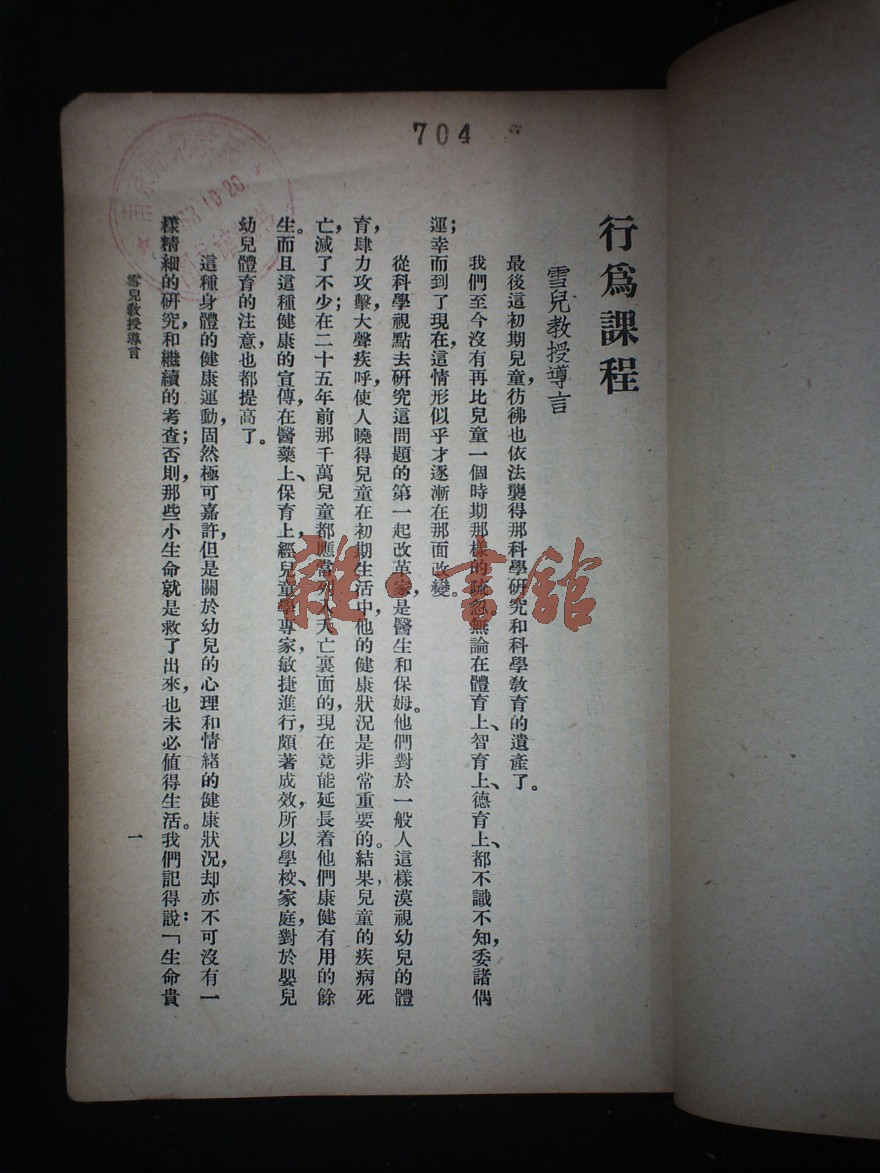 704
行爲課程
雪兒教授導言
最後這初期兒童，彷彿也依法襲得那科學研究和科學教育的遺產了。
我們至今沒有再比兒童一個時期那樣的疏忽。無論在體育上、智育上、德育上、都不識不知，委諸偶
運；幸而到了現在，這情形似乎才逐漸在那面改變。
從科學視點去研究這問題的第一起改革家，是醫生和保姆。他們對於一般人這樣漠視幼兒的體
育，肆力攻擊，大聲疾呼，使人曉得兒童在初期生活中，他的健康狀況是非常重要的。結果，兒童的疾病死
亡，減了不少；在二十五年前那千萬兒童都應當列入夭亡裏面的，現在竟能延長着他們康健有用的餘
生。而且這種健康的宣傳，在醫藥上、保育上，經兒童學專家敏捷進行，頗著成效，所以學校、家庭，對於嬰兒
幼兒體育的注意，也都提高了。
這種身體的健康運動，固然極可嘉許，但是關於幼兒的心理和情緒的健康狀況，却亦不可沒有一
樣精細的研究和繼續的考查；否則，那些小生命就是救了出來，也未必值得生活。我們記得說：「生命貴
雪兒教授導言
一
雜·書舘
10.20.